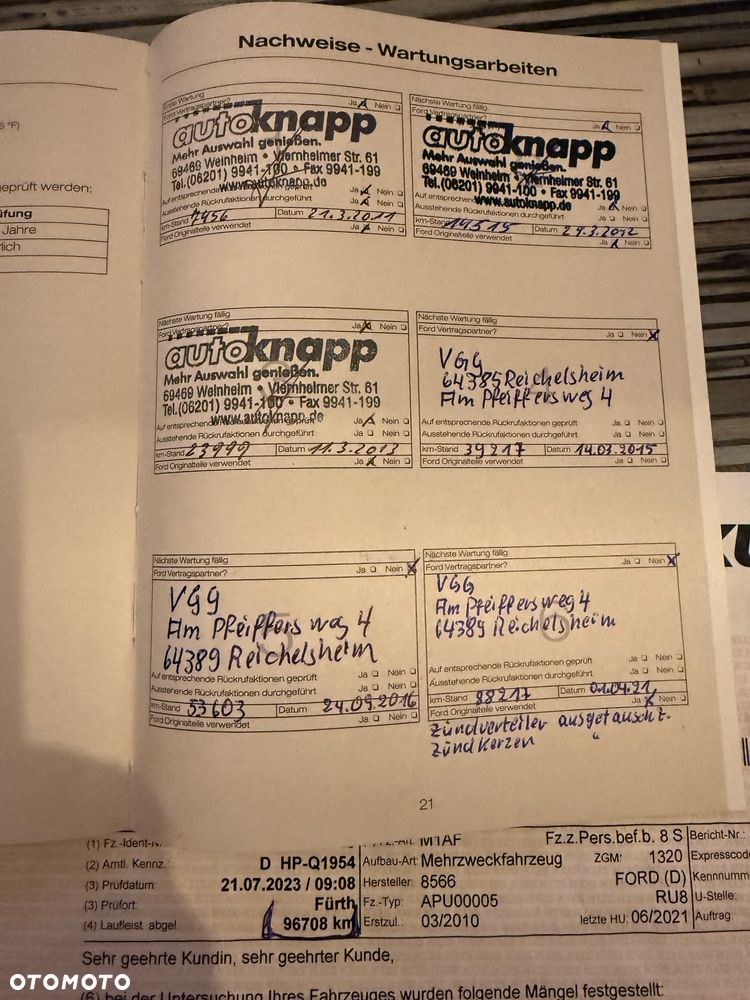 Nachweise - Wartungsarbeiten
5 °F)
geprüft werden:
üfung
Jahre
rlich
Erste Wartung
Ford Vertragspartner? Ja Nein
autoknapp
Mehr Auswahl genießen.
69469 Weinheim • Viernheimer Str. 61
Tel.(06201) 9941-100 • Fax 9941-199
www.autoknapp.de
Auf entsprechende Ja Nein
Ausstehende Rückrufaktionen durchgeführt Ja Nein
km-Stand 7456 Datum 21.3.2011
Ford Originalteile verwendet Ja Nein
Nächste Wartung fällig
Ford Vertragspartner? Ja Nein
autoknapp
Mehr Auswahl genießen.
69469 Weinheim • Viernheimer Str. 61
Tel.(06201) 9941-100 • Fax 9941-199
www.autoknapp.de
Auf entsprechende Ja Nein
Ausstehende Rückrufaktionen durchgeführt Ja Nein
km-Stand Datum 29.3.2012
Ford Originalteile verwendet Ja Nein
Nächste Wartung fällig
Ford Vertragspartner? Ja Nein
autoknapp
Mehr Auswahl genießen.
69469 Weinheim • Viernheimer Str. 61
Tel.(06201) 9941-100 • Fax 9941-199
www.autoknapp.de
Auf entsprechende Rückrufaktionen geprüft Ja Nein
Ausstehende Rückrufaktionen durchgeführt Ja Nein
km-Stand 23999 Datum 11.3.2013
Ford Originalteile verwendet Ja Nein
Nächste Wartung fällig
Ford Vertragspartner? Ja Nein
VGG
64385 Reichelsheim
Am Pfeiffersweg 4
Auf entsprechende Rückrufaktionen geprüft Ja Nein
Ausstehende Rückrufaktionen durchgeführt Ja Nein
km-Stand 39217 Datum 14.03.2015
Ford Originalteile verwendet Ja Nein
Nächste Wartung fällig
Ford Vertragspartner? Ja Nein
VGG
Am Pfeiffersweg 4
64389 Reichelsheim
Auf entsprechende Rückrufaktionen geprüft Ja Nein
Ausstehende Rückrufaktionen durchgeführt Ja Nein
km-Stand 53603 Datum 24.09.2016
Ford Originalteile verwendet Ja Nein
Nächste Wartung fällig
Ford Vertragspartner? Ja Nein
VGG
Am Pfeiffersweg 4
64389 Reichelsheim
6
Auf entsprechende Rückrufaktionen geprüft Ja Nein
Ausstehende Rückrufaktionen durchgeführt Ja Nein
km-Stand 88217 Datum 01.04.21
Ford Originalteile verwendet Ja Nein
Zündverteiler ausgetauscht.
Zündkerzen "
21
(1) Fz.-Ident-N. M1AF Fz.z.Pers.bef.b. 8 S Bericht-Nr.:
(2) Amtl. Kennz.: D HP-Q1954 Aufbau-Art: Mehrzweckfahrzeug ZGM: 1320 Expresscode
(3) Prüfdatum 21.07.2023 / 09:08 Hersteller: 8566 FORD (D) Kennnumm
(3) Prüfort: Fürth Fz.-Typ: APU00005 RU8 U-Stelle:
(4) Laufleist abgel. 96708 km Erstzul.: 03/2010 letzte HU: 06/2021 Auftrag:
Sehr geehrte Kundin, sehr geehrter Kunde,
(6) bei der Untersuchung Ihres Fahrzeuges wurden folgende Mängel festgestellt:
OTOMOTO